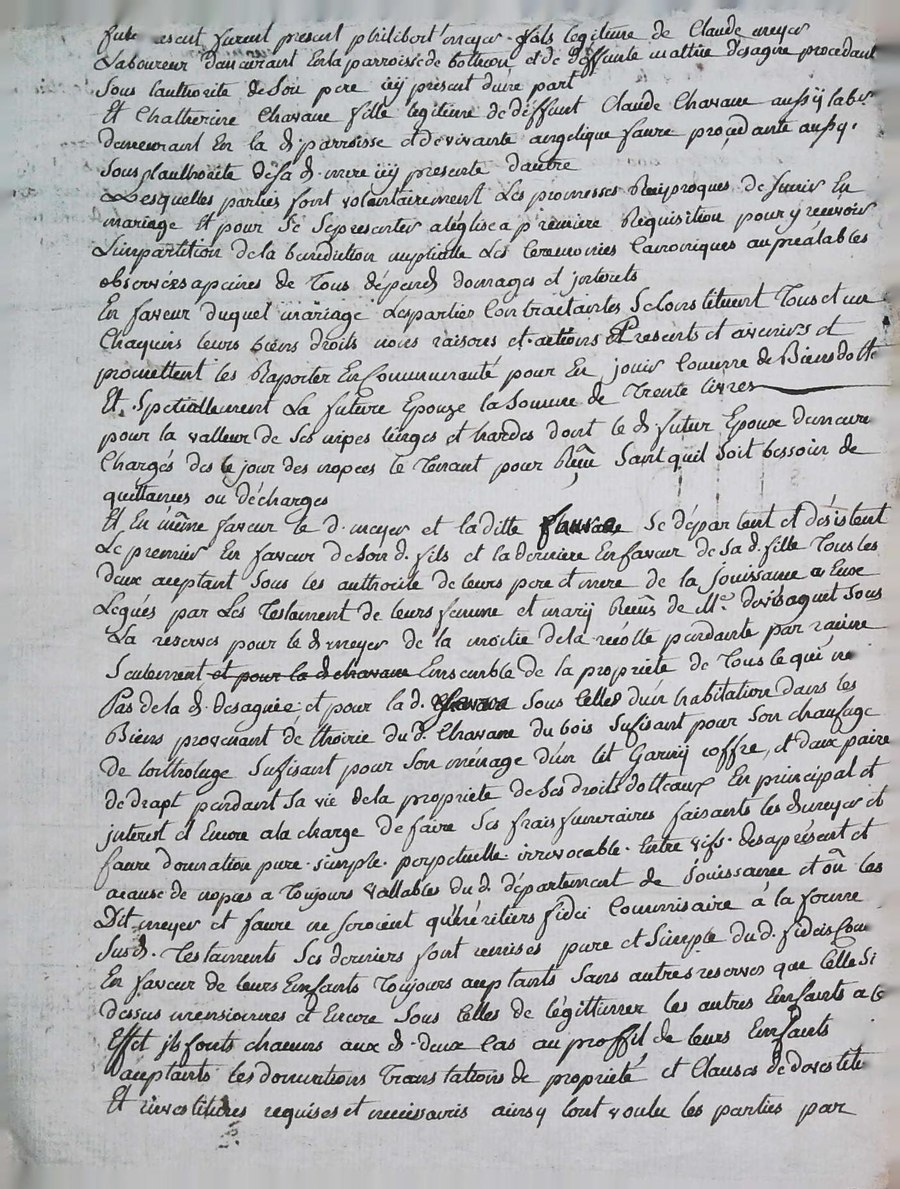 furent present philibert meyer fils legitime de Claude meyer
Laboureur demeurant En la parroisse de et de deffunte desagne procedant
Sous lauthorité de Son pere icy present d'une part
Et Chatherine Chavane fille legitime de deffunt Claude Chavane aussy labr
demeurant En la d. parroisse et de vivante angelique faure procedante aussy
Sous l'authorité de sa d. mere icy presente dautre
Lesquelles parties font volontairement Les promesses Reciproques de Sunir En
mariage Et pour Se Sepresenter a leglise a premiere Requisition pour y recevoir
Limpartition de la benediction nuptialle Les Ceremonies Canoniques au prealables
observées apaines de Tous dépends domages et jnterets
En faveur duquel mariage Lesparties Contractantes Se Constituent Tous et un
Chaquuns leurs biens droits noms raisons et actions Presents et avenirs et
promettent les Raporter En Communauté pour En jouir Comme de Biens dotte
Et Spetiallement La future Epouze la Somme de Trente livres
pour la valleur de Ses nipes linges et hardes dont le d. futur Epoux demeure
Chargés des le jour des nopces le Tenant pour Sant quil soit bessoin de
quittances ou décharges
Et En même faveur le d. meyer et laditte faure Se départent et désistent
Le premier En faveur de Son d. fils et la derniere En faveur de Sa d. fille Tous les
deux aceptant Sous les authorité de leurs pere et mere de la jouissance a Eux
Légués par Les Testament de leurs femme et mary de Me. devisaguet Sous
La reserves pour le d. meyer de la moitie de la récolte pendante par racine
Seulement et pour la d. chavane Emsemble de la propriete de Tous le qui
Pas de la d. desagnée et pour la d. Sous Celles dun habitation dans les
Biens provenant de lhoirie du d. Chavane du bois Sufisant pour Son chaufage
De lortholage Sufisant pour Son ménage dun lit Garny coffre, et deux paire
de drapt pendant Sa vie de la propriete de Ses droits dotteaux En principal et
jnterest et Encore a la charge de faire Ses frais funeraires faisants les d. meyer et
faure donnation pure simple perpetuelle irrevocable Entre vifs des apresent et
acause de nopces a Toujours vallables du d. département de Jouissance et où les
Dit meyer et faure ne Seroient quhéritiers fideï Commisaire à la forme
Sus d. Testaments Ses derniers font remises pure et Simple du d. fideis Com
En faveur de leurs Enfants Toujours aceptants Sans autres reserves que Celle Si
dessus mensionnées et Encore Sous Celles de légittimer les autres Enfants a ce
Effet jls fonts chacuns aux d. deux Cas au proffit de leurs Enfants
aceptants les donnations Translations de proprieté et Clauses de
Et investitures requises et necessaires ainsy lont voulu les parties par